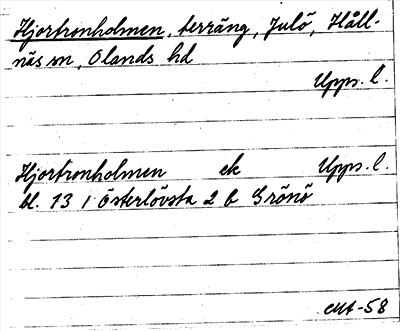 Hjortronholmen, terräng, Julö, Håll-
näs sn, Olands hd
Upps. l.
Hjortronholmen ek Upps. l.
bl. 13 I Österlövsta 2 b Grönö
-58